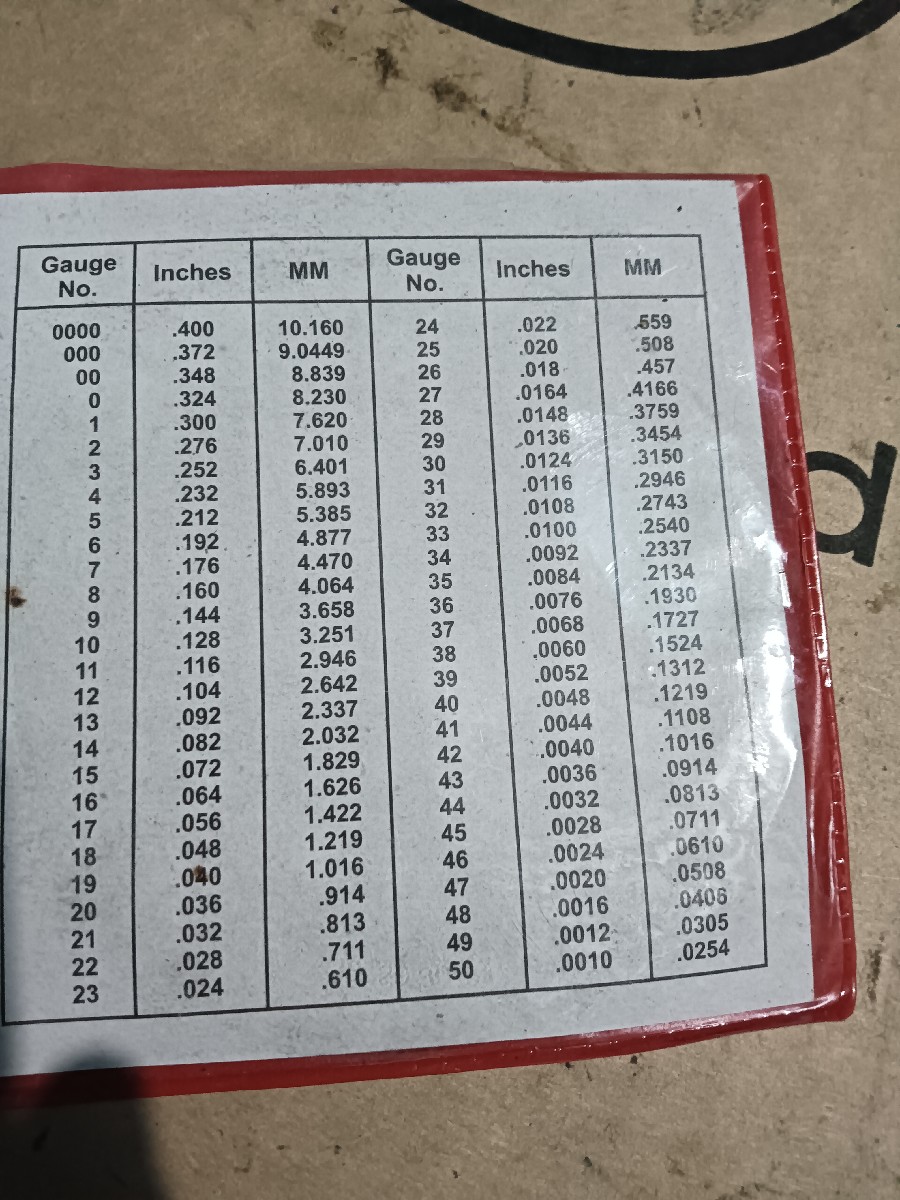 Gauge No. Inches MM Gauge No. Inches MM
0000 .400 10.160 24 .022 .559
000 .372 9.0449 25 .020 .508
00 .348 8.839 26 .018 .457
0 .324 8.230 27 .0164 .4166
1 .300 7.620 28 .0148 .3759
2 .276 7.010 29 .0136 .3454
3 .252 6.401 30 .0124 .3150
4 .232 5.893 31 .0116 .2946
5 .212 5.385 32 .0108 .2743
6 .192 4.877 33 .0100 .2540
7 .176 4.470 34 .0092 .2337
8 .160 4.064 35 .0084 .2134
9 .144 3.658 36 .0076 .1930
10 .128 3.251 37 .0068 .1727
11 .116 2.946 38 .0060 .1524
12 .104 2.642 39 .0052 .1312
13 .092 2.337 40 .0048 .1219
14 .082 2.032 41 .0044 .1108
15 .072 1.829 42 .0040 .1016
16 .064 1.626 43 .0036 .0914
17 .056 1.422 44 .0032 .0813
18 .048 1.219 45 .0028 .0711
19 .040 1.016 46 .0024 .0610
20 .036 .914 47 .0020 .0508
21 .032 .813 48 .0016 .0406
22 .028 .711 49 .0012 .0305
23 .024 .610 50 .0010 .0254